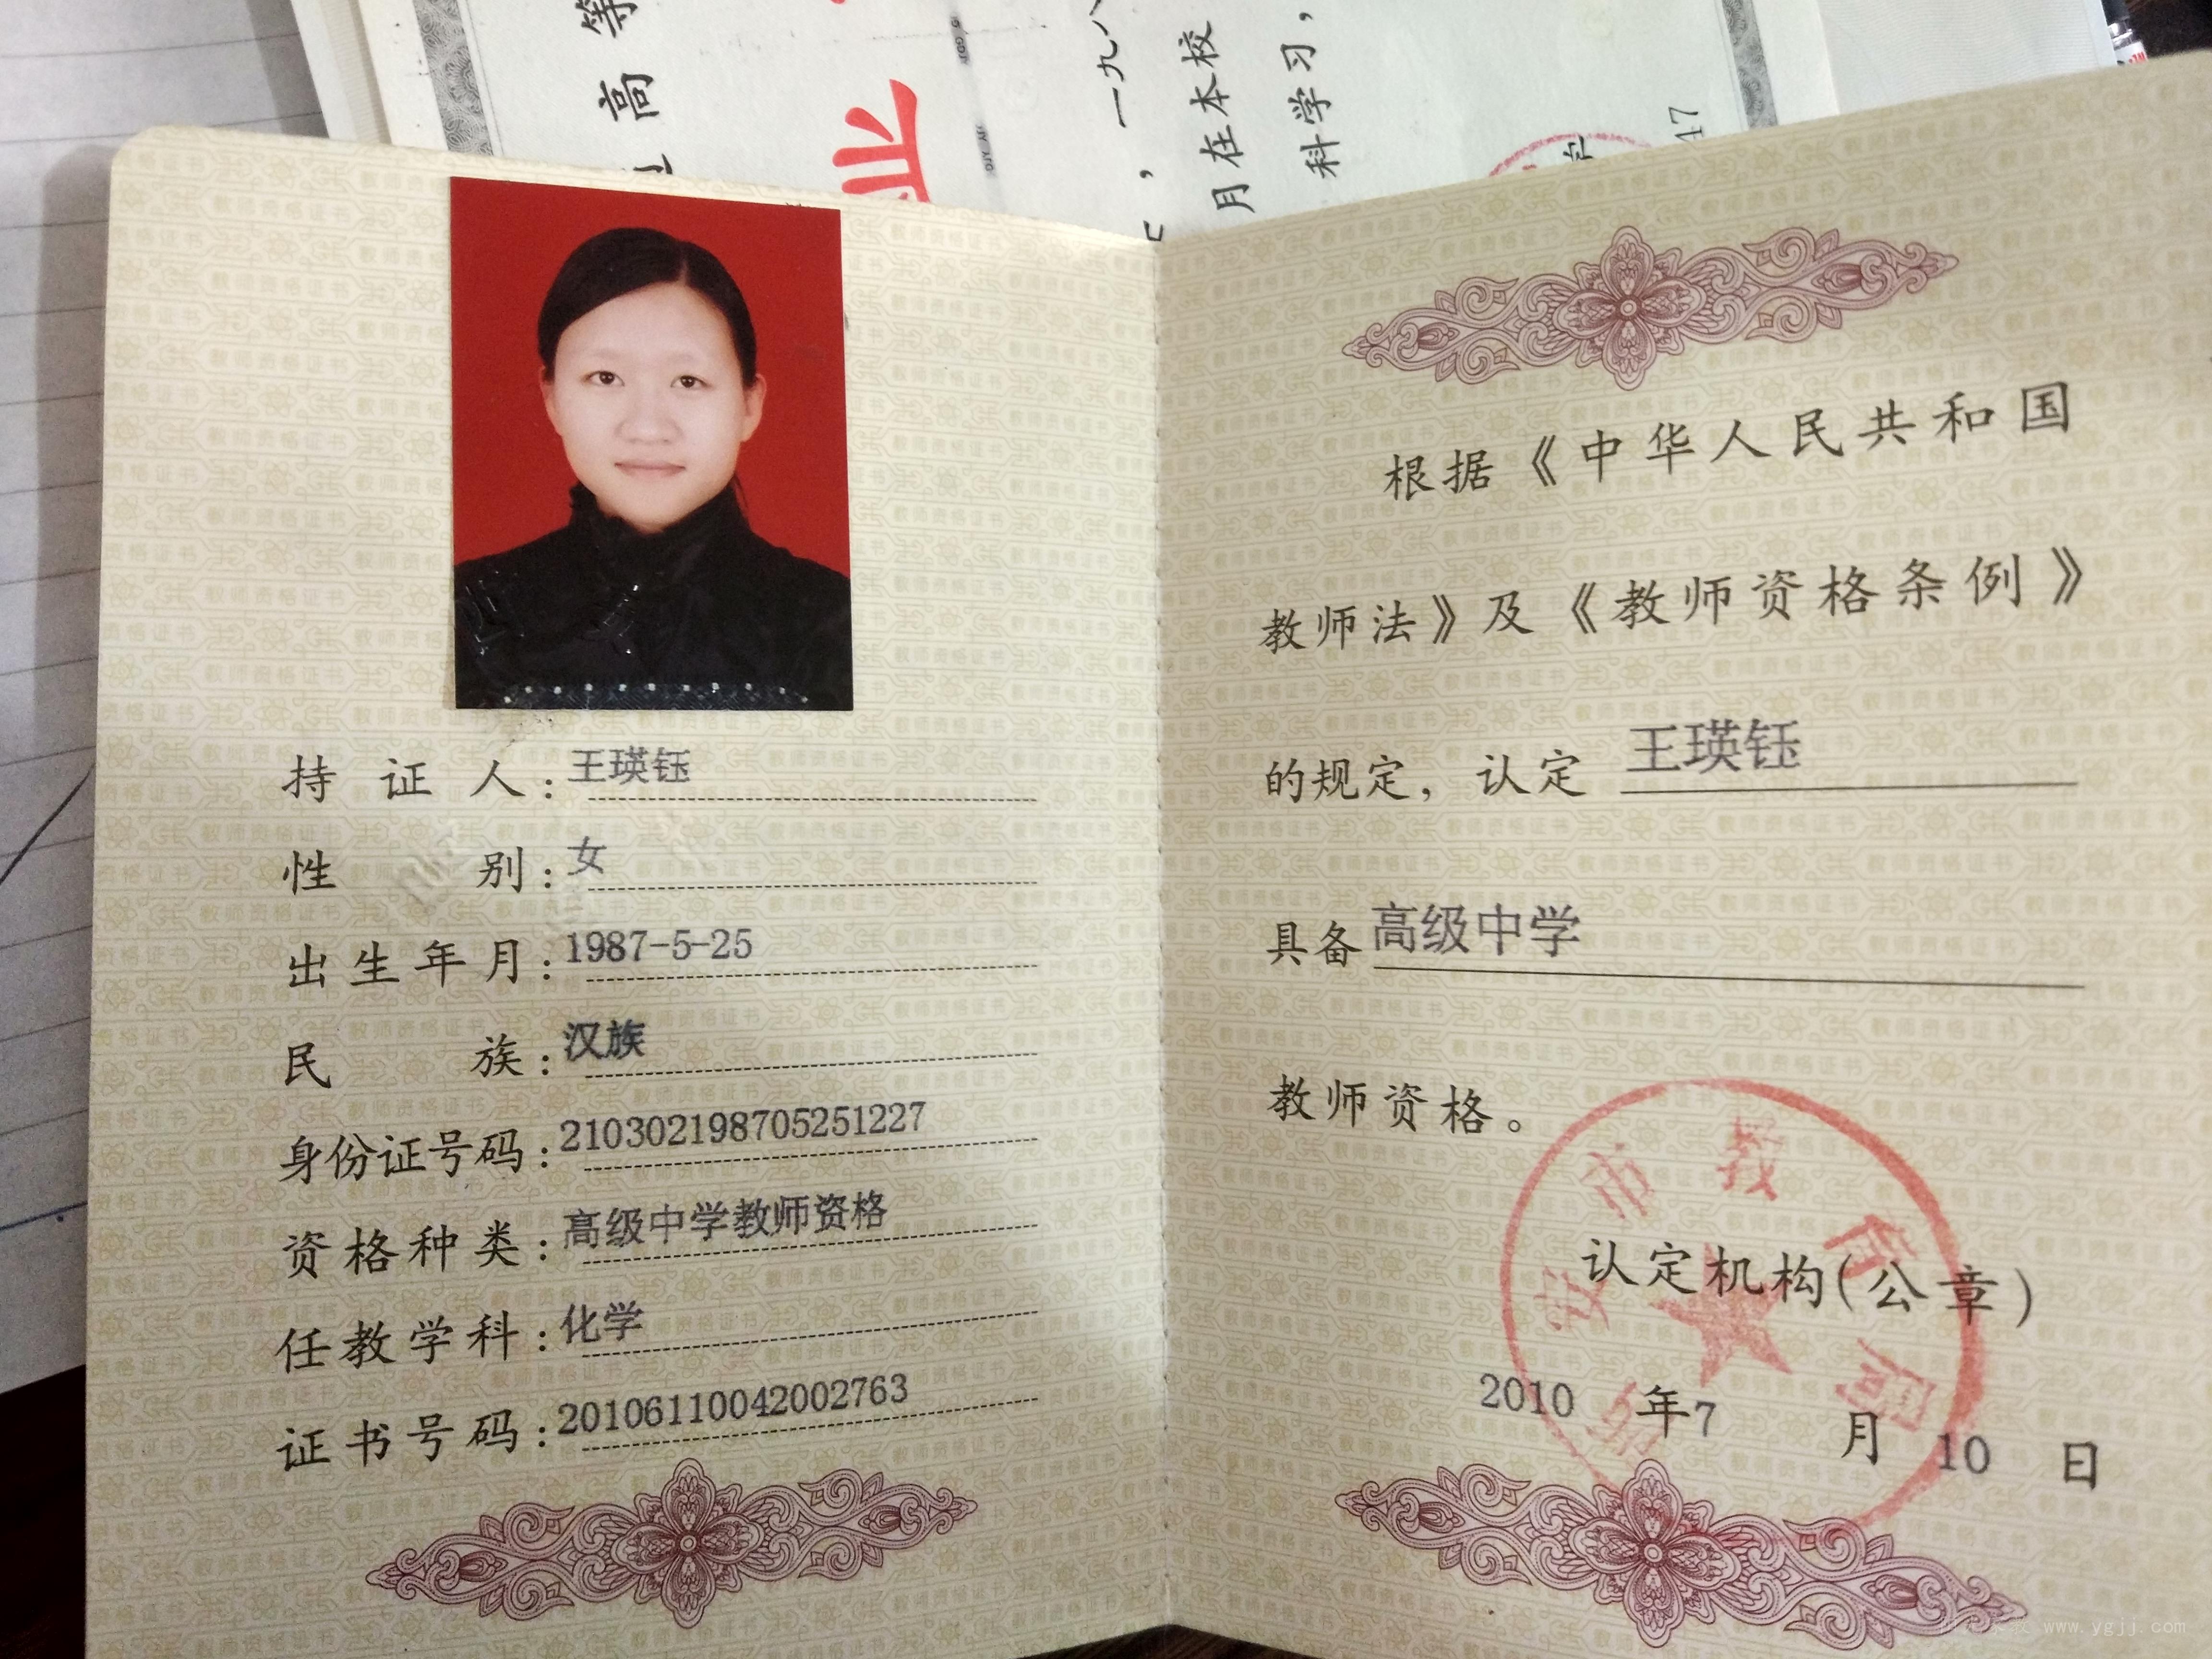 持证人：王瑛钰
性别：女
出生年月：1987-5-25
民族：汉族
身份证号码：210302198705251227
资格种类：高级中学教师资格
任教学科：化学
证书号码：20106110042002763
根据《中华人民共和国
教师法》及《教师资格条例》
的规定，认定 王瑛钰
具备高级中学
教师资格。
认定机构(公章)
2010 年7 月 10 日
安市教育局
高等
业
，一九八
月在本校
科学习，
47
www.ygjj.com